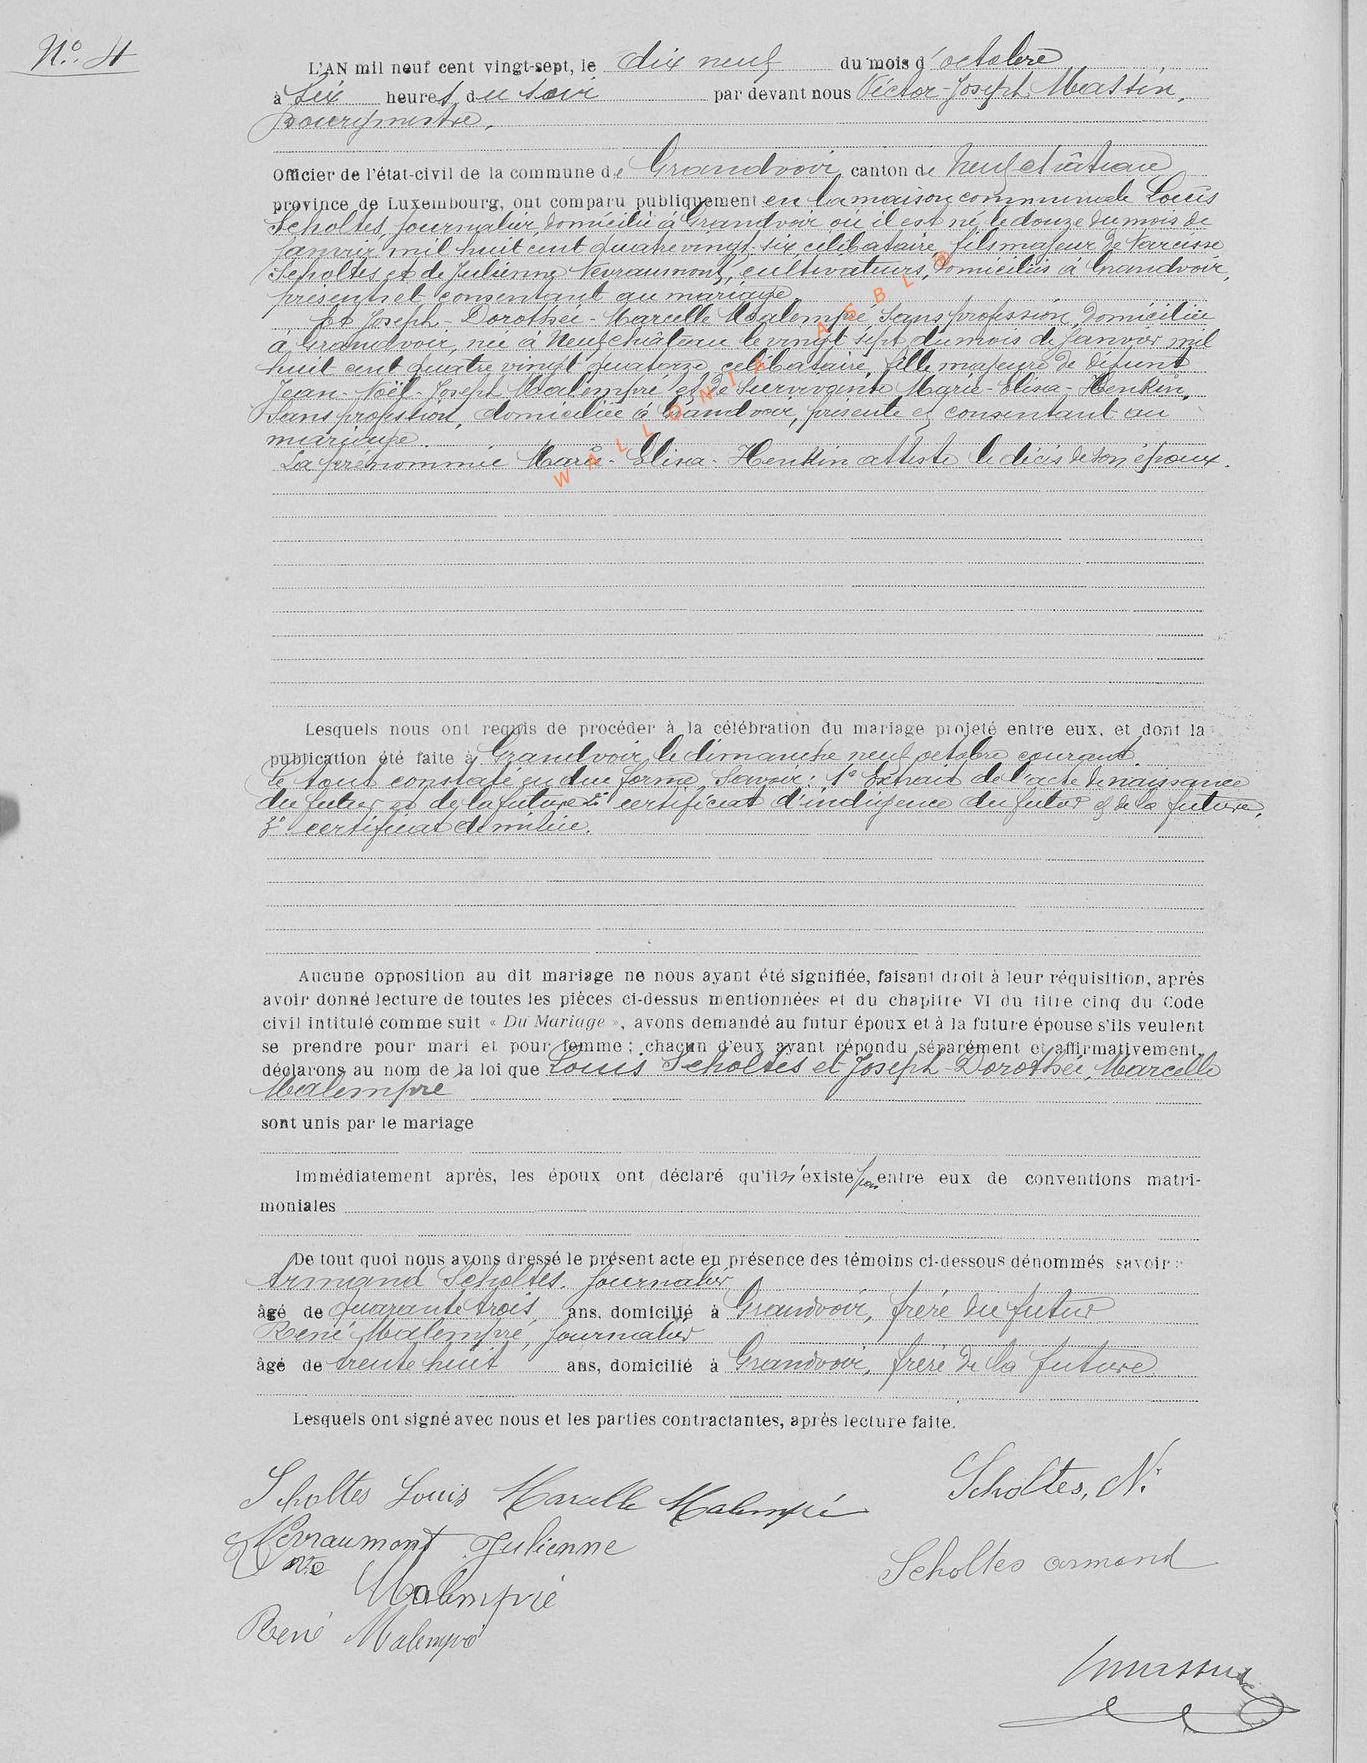 N° 4
L'AN mil neuf cent vingt-sept, le dix neuf du mois d'octobre
à six heures du soir par devant nous Victor-Joseph Massin,
bourgmestre,
Officier de l'état-civil de la commune de Grandvoir, canton de Neufchâteau
province de Luxembourg, ont comparu publiquement en la maison communale Louis
Scholtes, journalier, domicilié à Grandvoir où il est né le douze du mois de
janvier mil huit cent quatre vingt six, célibataire, fils majeur de Narcisse
Scholtes et de Julienne Nevraumont, cultivateurs, domiciliés à Grandvoir,
présents et consentant au mariage.
Et Joseph-Dorothée-Marcelle Malempré, sans profession, domiciliée
à Grandvoir, née à Neufchâteau le vingt sept du mois de janvier mil
huit cent quatre vingt quatorze, célibataire, fille majeure de défunt
Jean-Noël-Joseph Malempré et de survivante Marie-Elisa-Henkin,
sans profession, domiciliée à Grandvoir, présente et consentant au
mariage.
La prénommée Marie-Elisa-Henkin atteste le décès de son époux.
WALLONIA ASBL ®
Lesquels nous ont requis de procéder à la célébration du mariage projeté entre eux, et dont la
publication été faite à Grandvoir, le dimanche neuf octobre courant.
Le tout constaté en due forme, savoir: 1° Extrait de l'acte de naissance
du futur et de la future 2° certificat d'indigence du futur et de la future,
3° certificat de milice.
Aucune opposition au dit mariage ne nous ayant été signifiée, faisant droit à leur réquisition, après
avoir donné lecture de toutes les pièces ci-dessus mentionnées et du chapitre VI du titre cinq du Code
civil intitulé comme suit « Du Mariage », avons demandé au futur époux et à la future épouse s'ils veulent
se prendre pour mari et pour femme; chacun d'eux ayant répondu séparément et affirmativement,
déclarons au nom de la loi que Louis Scholtes et Joseph-Dorothée, Marcelle
Malempré
sont unis par le mariage
Immédiatement après, les époux ont déclaré qu'il n'existe pas entre eux de conventions matri-
moniales
De tout quoi nous avons dressé le présent acte en présence des témoins ci-dessous dénommés savoir:
Armand Scholtes, journalier
âgé de quarante trois, ans, domicilié à Grandvoir, frère du futur
René Malempré, journalier
âgé de trente huit ans, domicilié à Grandvoir, frère de la future
Lesquels ont signé avec nous et les parties contractantes, après lecture faite.
Scholtes Louis Marcelle Malempré Scholtes, N.
Nevraumont Julienne
Scholtes armand
Vve Malempré
René Malempré
VMassin